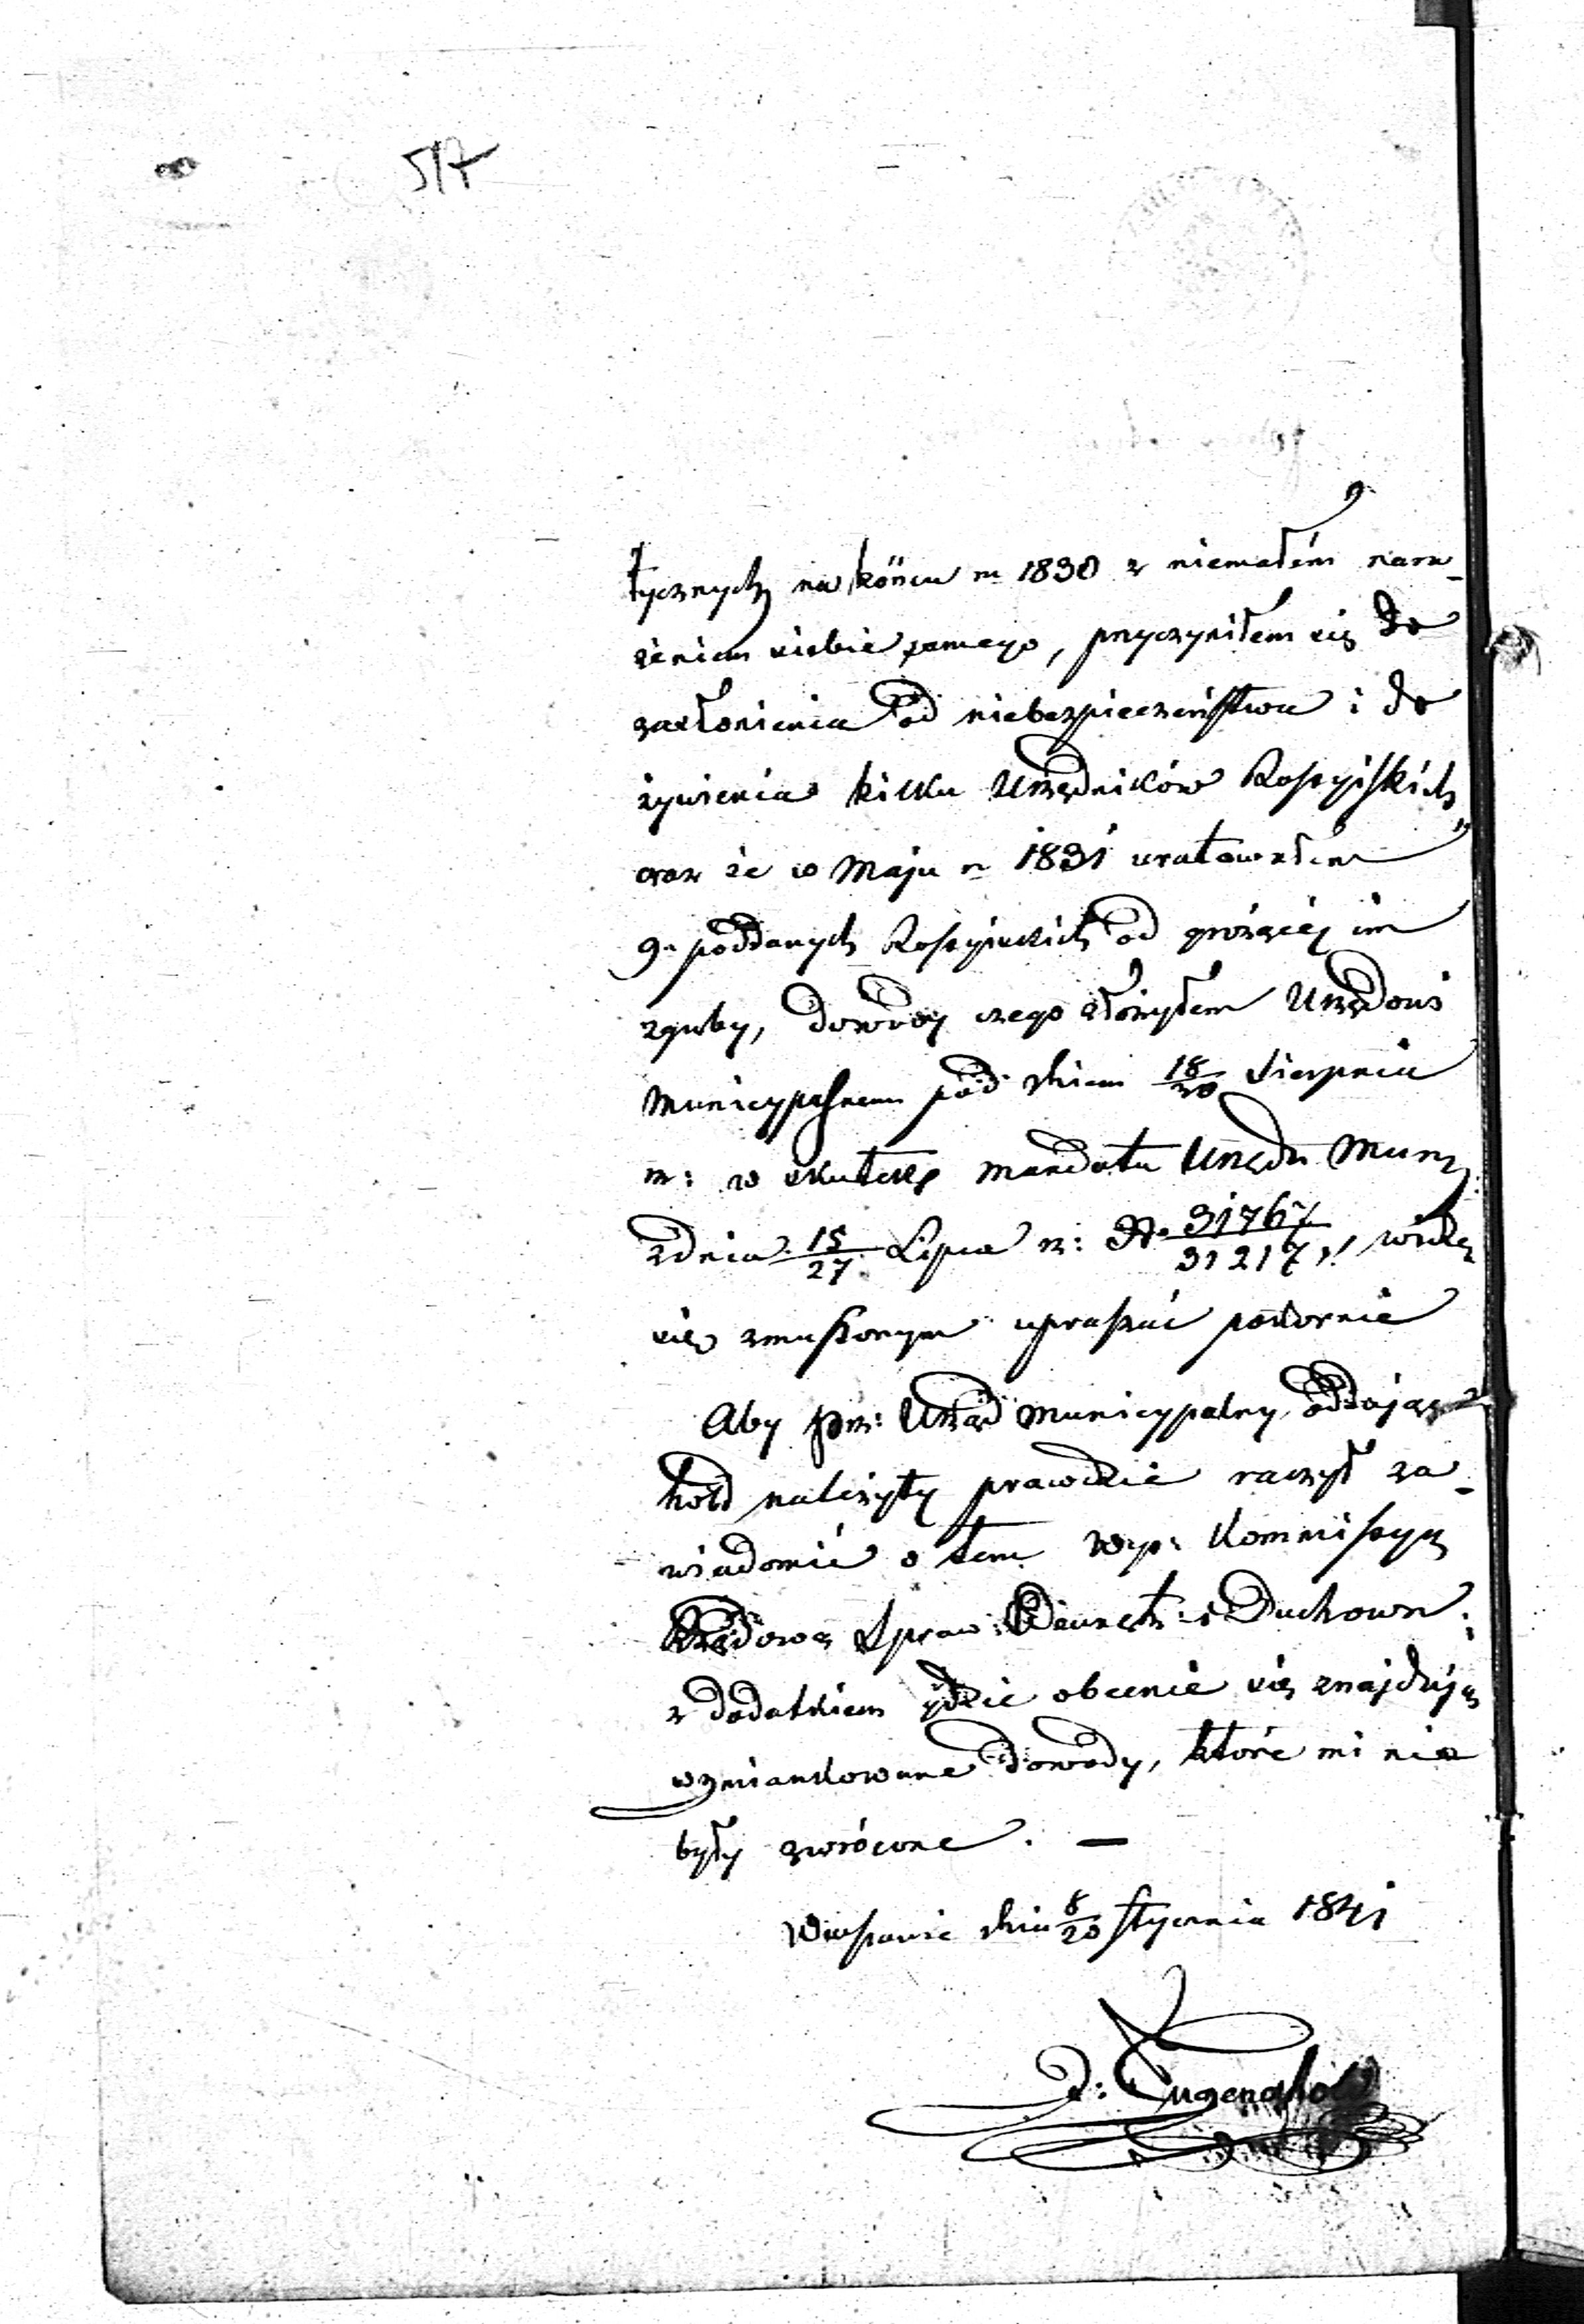 517
tycznych na końcu r. 1830 z niemałém nara-
żeniem siebie samego, przyczyniłem się do
zasłonienia od niebezpieczeństwa i do
żywienia kilku Urzędników Rossyiskich,
oraz że w Maju r. 1831 uratowałem
9. poddanych Rossyiskich od grożącéj im
zguby, dowody czego złożyłem Urzędowi
Municypalnemu pod dniem 18/30 Sierpnia
r: w skutek mandatu Urzędu Munz
z dnia 15/27 Lipca r: N. 31767/31217, widzę
się zmuszonym upraszać pokornie
Aby Prz: Urząd Municypalny oddając
hołd należyty prawdzie raczył za-
wiadomić o tem Wyż: Kommissyą
Rządową Spraw: Wewnętr: i Duchown:
z dodatkiem gdzie obecnie się znajdują
wzmiankowane dowody, które mi nie
były zwrócone. —
Warszawie dnia 8/20 Stycznia 1841